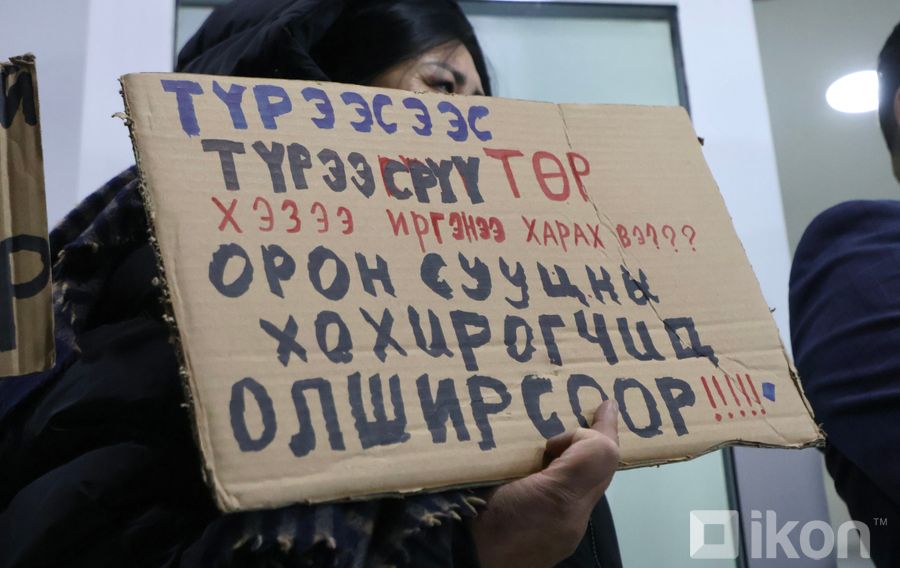 ТҮРЭЭСЭЭС
ТҮРЭЭСРҮҮ ТӨР
ХЭЗЭЭ ИРГЭНЭЭ ХАРАХ ВЭ????
ОРОН СУУЦНЫ
ХОХИРОГЧИД
ОЛШИРСООР!!!!!
ikon™